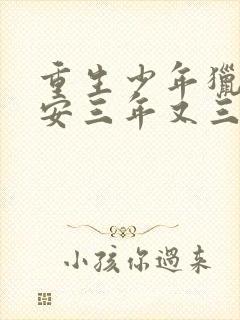 重生少年獵
安三年又三
小孩你過来